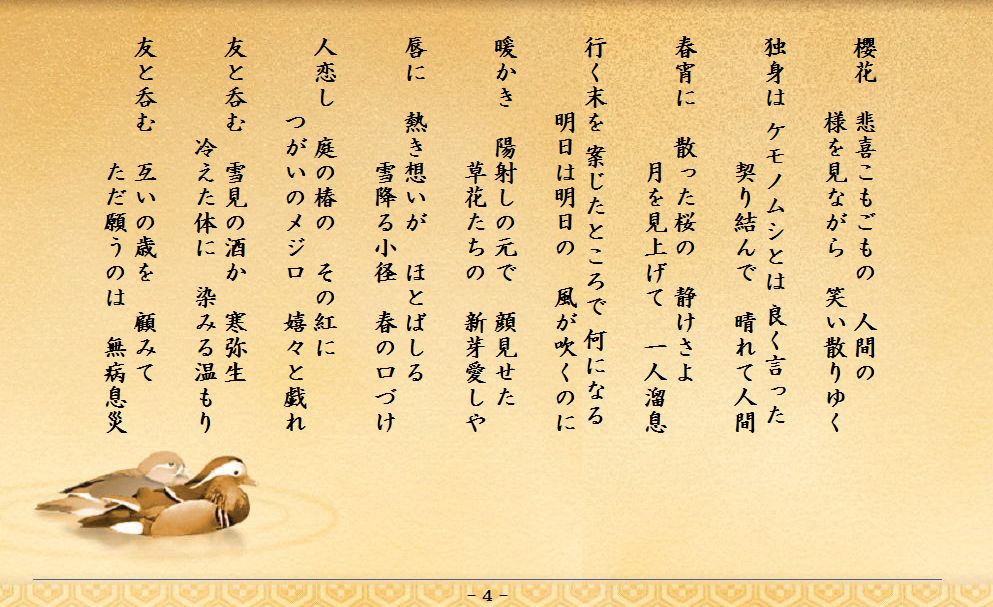 櫻花　悲喜こもごもの　人間の
様を見ながら　笑い散りゆく
独身は　ケモノムシとは　良く言った
契り結んで　晴れて人間
春宵に　散った桜の　静けさよ
月を見上げて　一人溜息
行く末を　案じたところで　何になる
明日は明日の　風が吹くのに
暖かき　陽射しの元で　顔見せた
草花たちの　新芽愛しや
唇に　熱き想いが　ほとばしる
雪降る小径　春の口づけ
人恋し　庭の椿の　その紅に
つがいのメジロ　嬉々と戯れ
友と呑む　雪見の酒か　寒弥生
冷えた体に　染みる温もり
友と呑む　互いの歳を　顧みて
ただ願うのは　無病息災
- 4 -